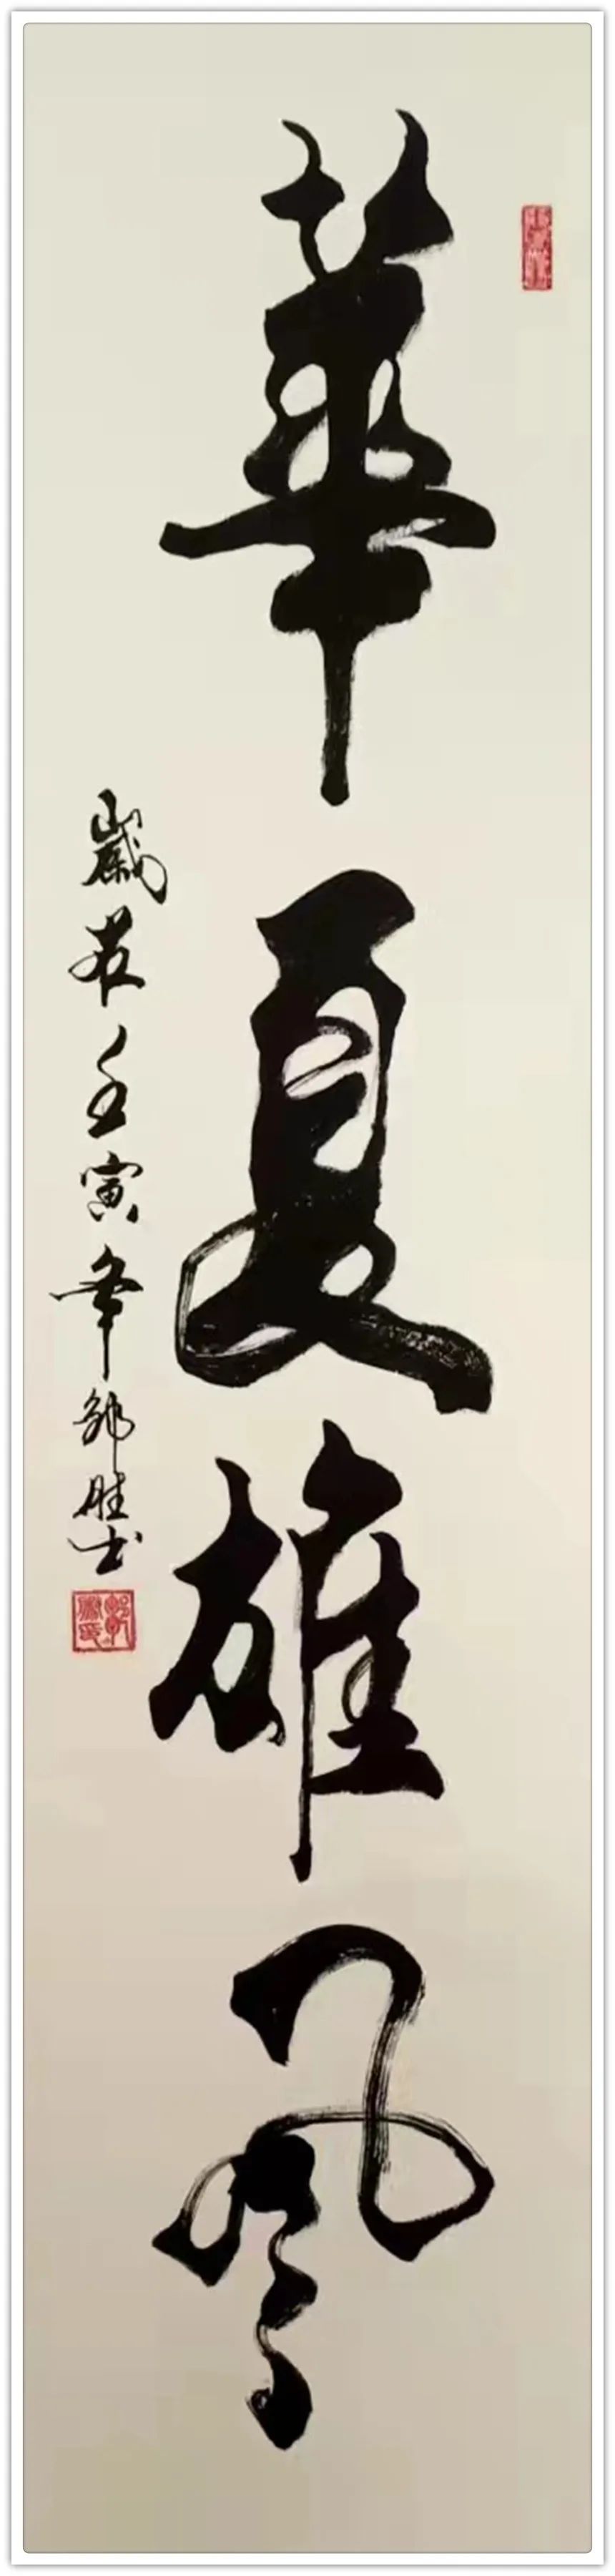 華夏雄風
歲在壬寅年郭胜書